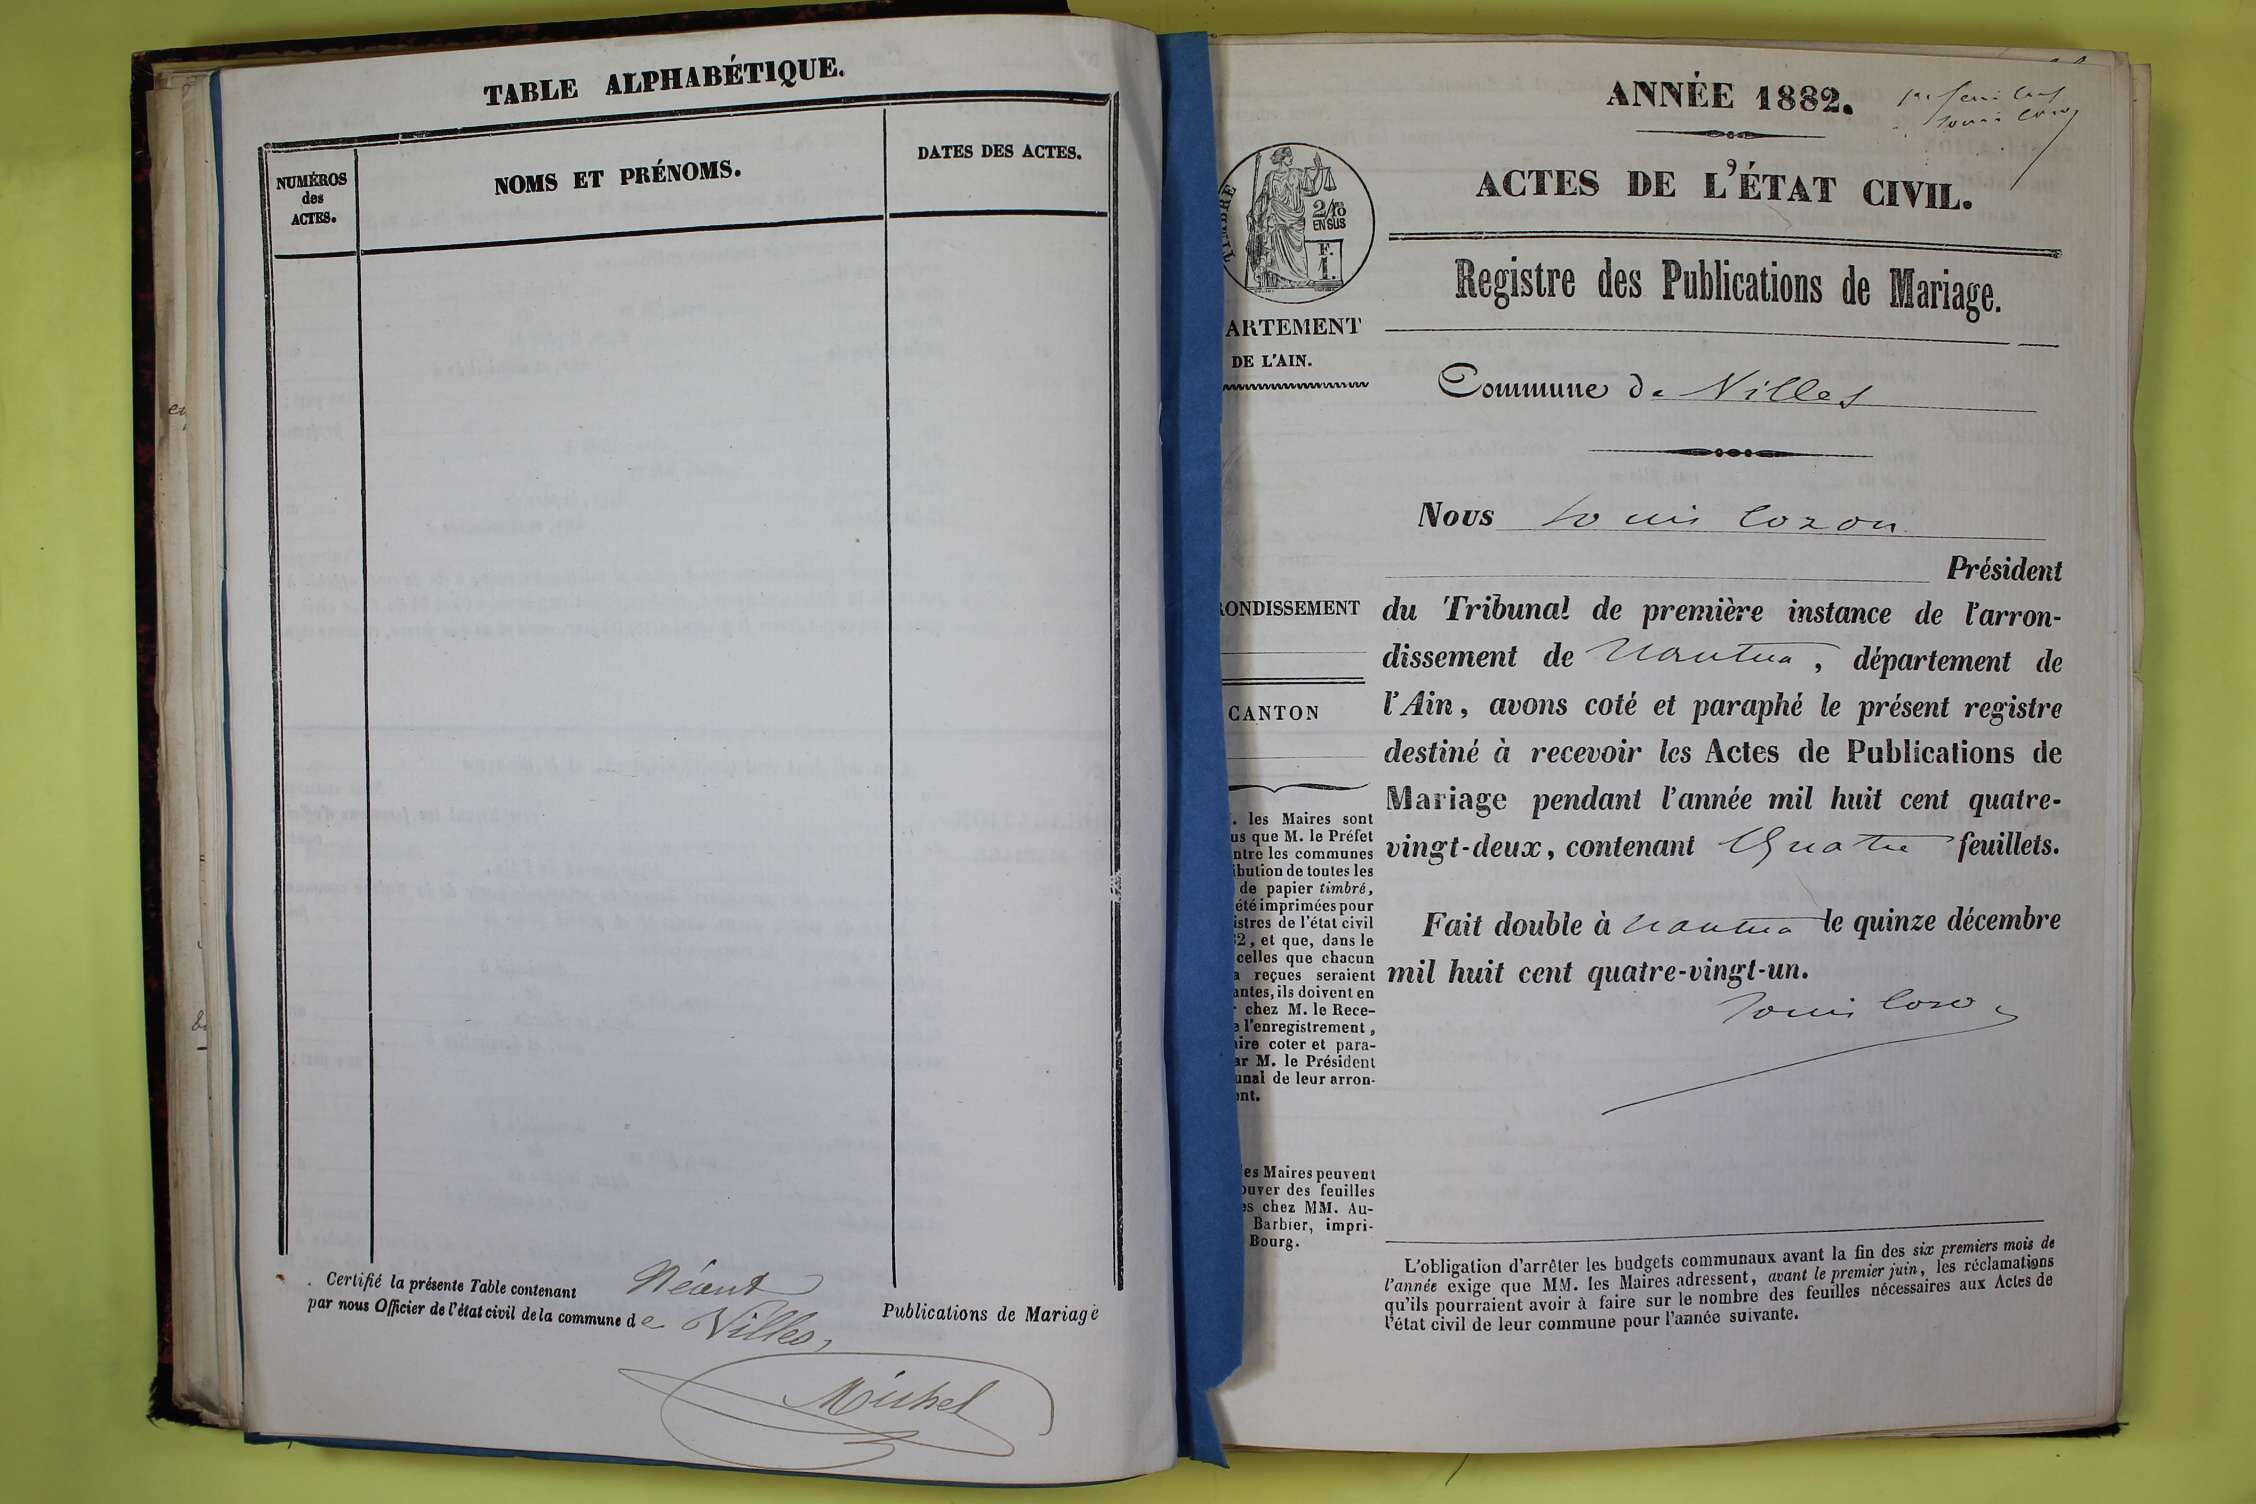 TABLE ALPHABÉTIQUE.
NUMÉROS
des
ACTES.
NOMS ET PRÉNOMS.
DATES DES ACTES.
Certifié la présente Table contenant Néant Publications de Mariage
par nous Officier de l'état civil de la commune de Villes,
Michel
ANNÉE 1882.
Louis Cozon
ACTES DE L'ÉTAT CIVIL.
TIMBRE
2/10
EN SUS
F.
1.
Registre des Publications de Mariage.
ARTEMENT
DE L'AIN.
Commune de Villes
Nous Louis Cozon
Président
du Tribunal de première instance de l'arron-
dissement de Nantua, département de
l'Ain, avons coté et paraphé le présent registre
destiné à recevoir les Actes de Publications de
Mariage pendant l'année mil huit cent quatre-
vingt-deux, contenant Quatre feuillets.
Fait double à Nantua le quinze décembre
mil huit cent quatre-vingt-un.
Louis Cozon
RONDISSEMENT
CANTON
. les Maires sont
us que M. le Préfet
ntre les communes
ibution de toutes les
de papier timbré,
été imprimées pour
istres de l'état civil
2, et que, dans le
celles que chacun
a reçues seraient
antes, ils doivent en
r chez M. le Rece-
e l'enregistrement,
aire coter et para-
ar M. le Président
unal de leur arron-
ent.
es Maires peuvent
ouver des feuilles
es chez MM. Au-
Barbier, impri-
Bourg.
L'obligation d'arrêter les budgets communaux avant la fin des six premiers mois de
l'année exige que MM. les Maires adressent, avant le premier juin, les réclamations
qu'ils pourraient avoir à faire sur le nombre des feuilles nécessaires aux Actes de
l'état civil de leur commune pour l'année suivante.